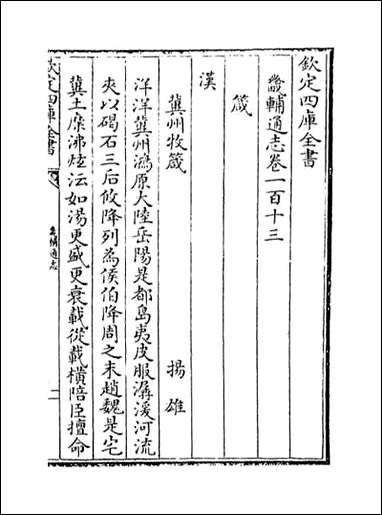 欽定四庫全書
畿輔通志卷一百十三
箴
漢
冀州牧箴　揚雄
洋洋冀州鴻原大陸岳陽是都島夷皮服潺湲河流
夾以碣石三后攸降列為侯伯降周之末趙魏是宅
冀土糜沸炫沄如湯更盛更衰載從載橫陪臣擅命
欽定四庫全書
畿輔通志
一